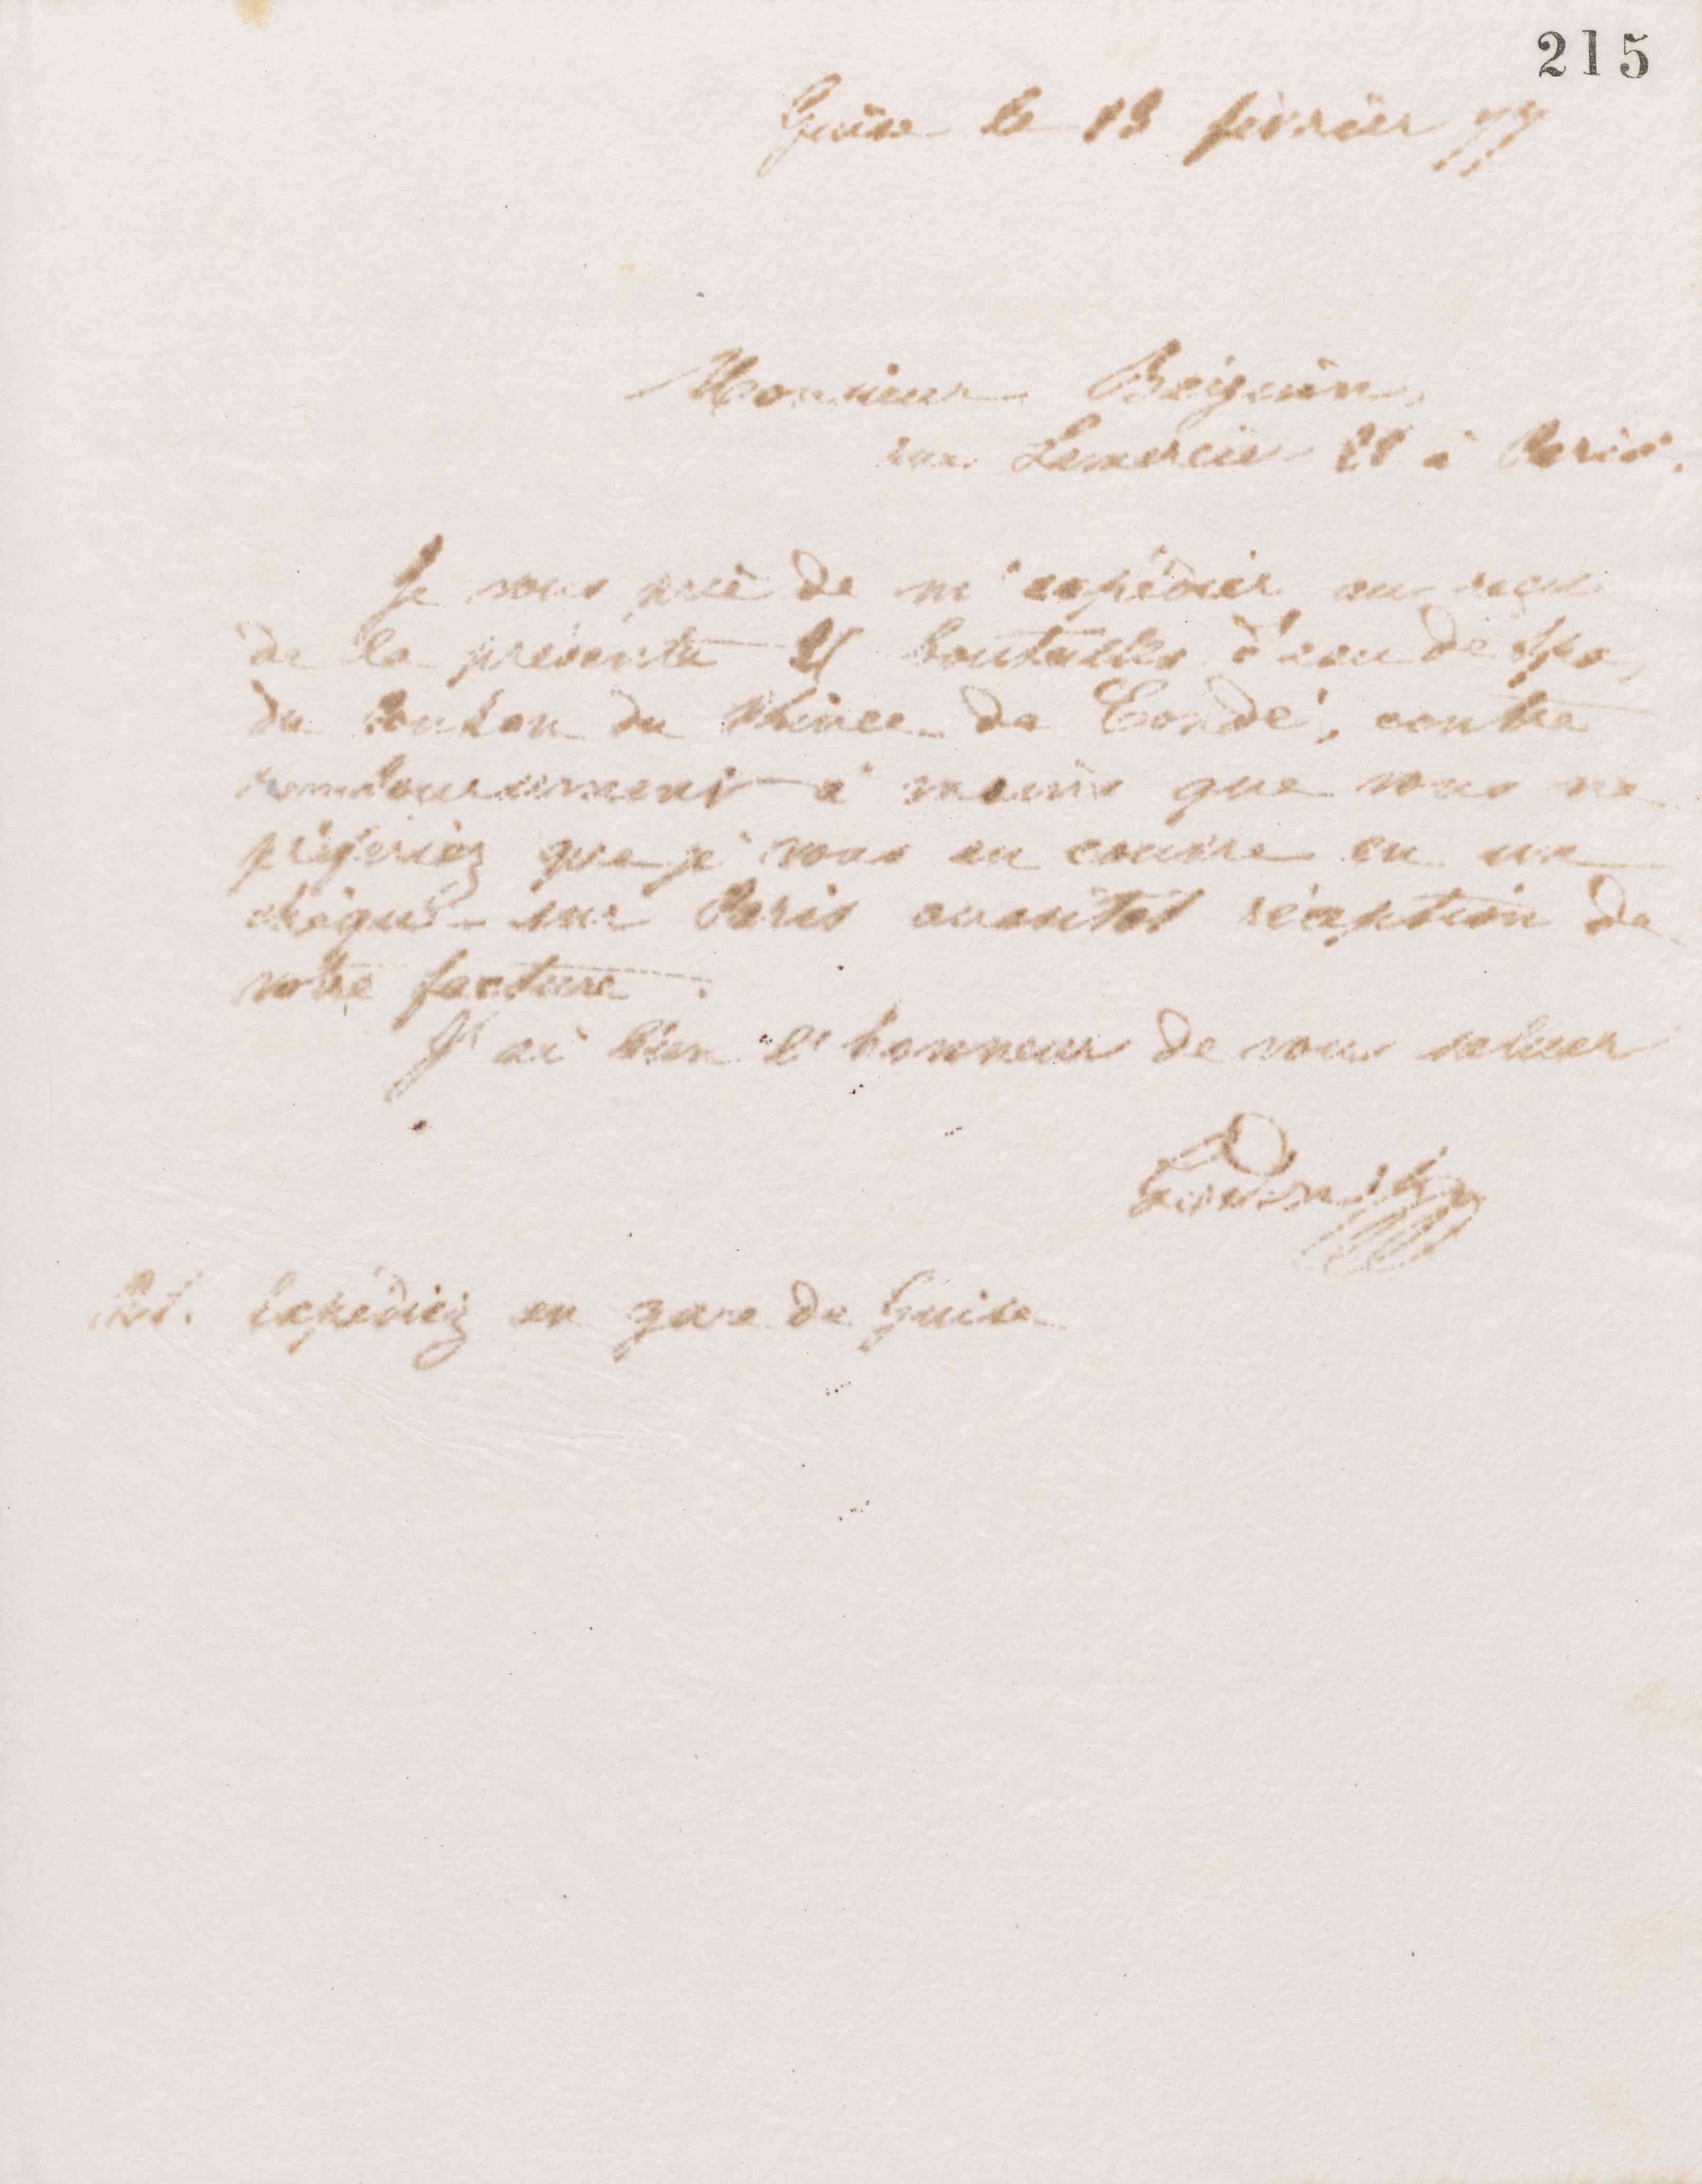 215
Guise le 13 février 77
Monsieur Beignin
rue Lemercier 21 à Paris.
Je vous prie de m'expédier au reçu
de la présente bouteilles d'eau de Spa,
du du Prince de Condé, contre
remboursement à moins que vous ne
préfériez que je vous en couvre en un
chèque sur Paris aussitôt réception de
votre facture.
J'ai bien l'honneur de vous saluer
Godin
Expédiez en gare de Guise